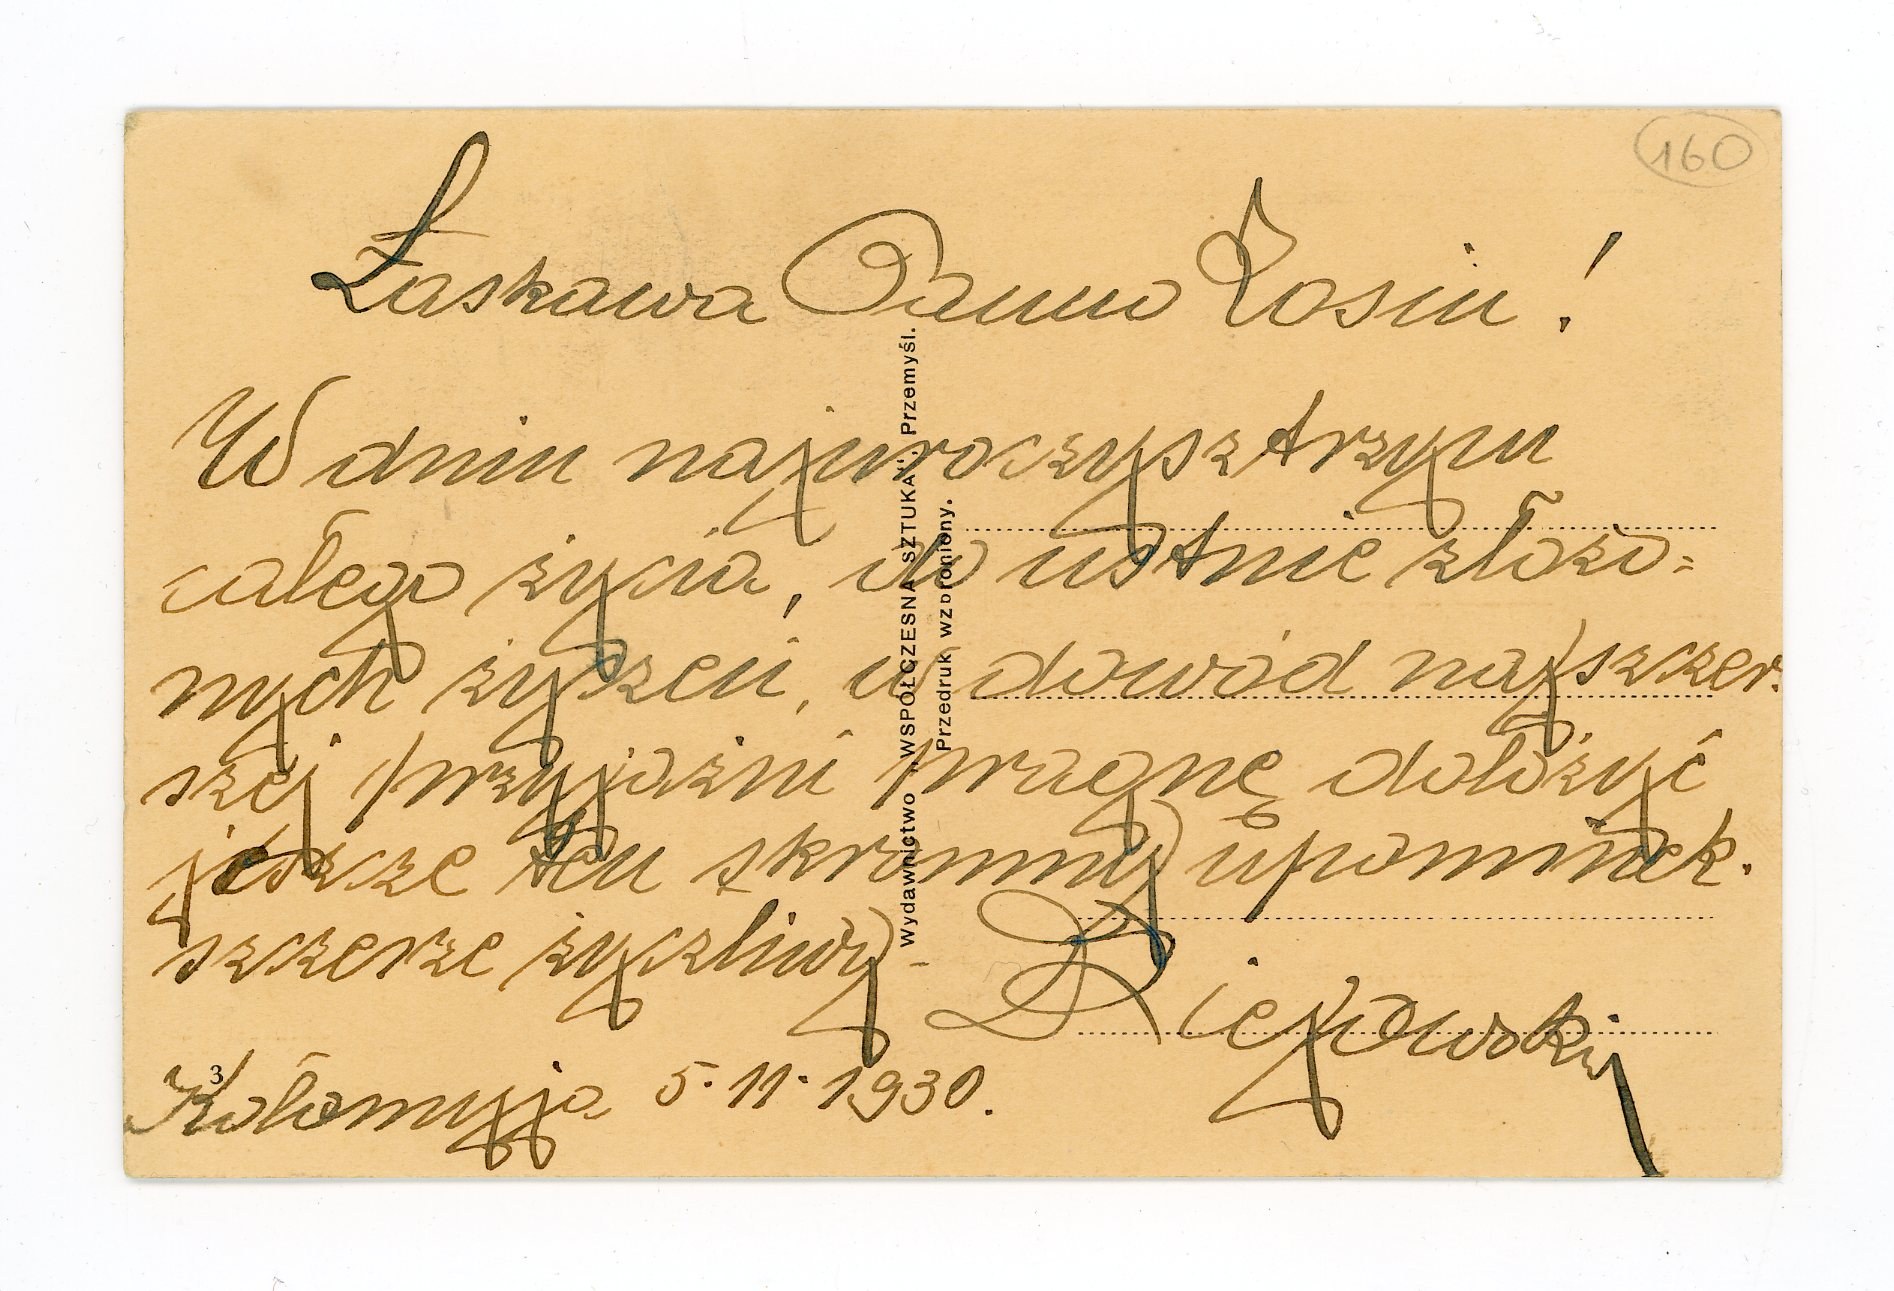 160
Łaskawa Panno Zosiu!
W dniu najuroczysztrzym
całego życia, do ustnie złożo=
nych życzeń, w dowód najszczer.
szej przyjaźni pragnę dołożyć
jeszcze ten skromny upominek.
szczerze życzliwy -
Kołomyja 5.11.1930.
3
Wydawnictwo „WSPÓŁCZESNA SZTUKA”. Przemyśl.
Przedruk wzbroniony.